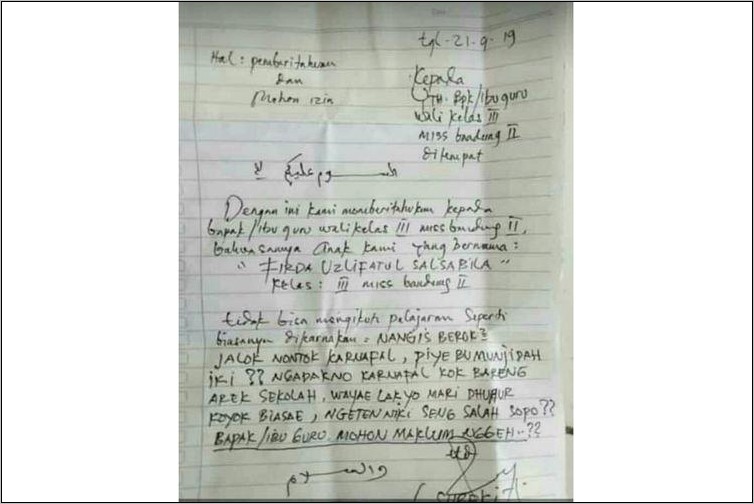 tgl - 21 - 9 - 19
Hal : pemberitahuan
dan
Mohon izin
Kepada
YTH. Bpk/ibu guru
wali kelas III
MISS bandung II
ditempat
السلام عليكم
Dengan ini kami memberitahukan kepada
bapak/ibu guru wali kelas III miss bandung II,
bahwasanya anak kami yang bernama :
" FIRDA UZLIFATUL SALSABILA "
Kelas : III miss bandung II
tidak bisa mengikuti pelajaran seperti
biasanya dikarnakan = NANGIS BEROK2
JALOK NONTOK KARNAFAL, PIYE BU MUNJIDAH
IKI ?? NGADAKNO KARNAFAL KOK BARENG
AREK SEKOLAH, WAYAE LAK YO MARI DHUHUR
KOYOK BIASAE, NGETEN NIKI SENG SALAH SOPO ??
BAPAK/IBU GURU. MOHON MAKLUM NGGEH..??
ttd
والسلام